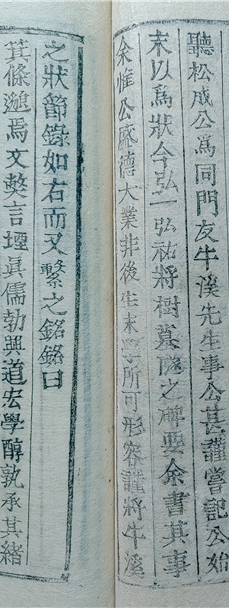 聽松成公爲同門友牛溪先生事公甚謹嘗記公始
末以爲狀今弘一弘祐將樹墓隧之碑要余書其事
余惟公盛德大業非後生末學所可形容謹將牛溪
之狀節錄如右而又繫之銘銘曰
箕條邈焉文獘言堙眞儒勃興道宏學醇孰承其緖